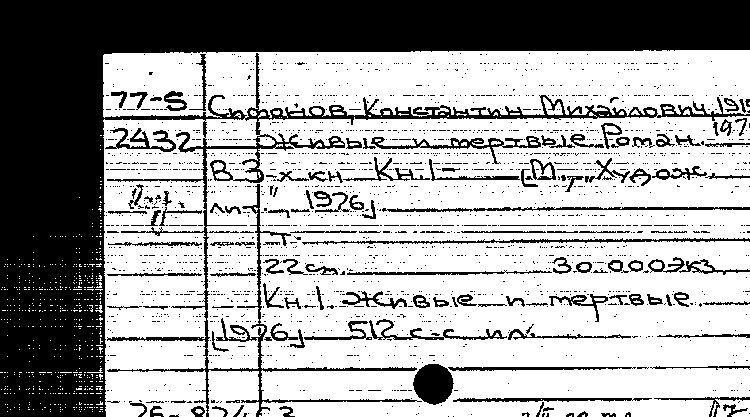 77-S Симонов, Константин Михайлович, 1915
197
2432 Живые и мертвые Роман.
В 3-х кн Кн. 1 – [М., „Худож.
лит.", 1976]
т.
22 см. 30.000 экз
Кн. 1. Живые и мертвые
[1976] 512 с. с ил.